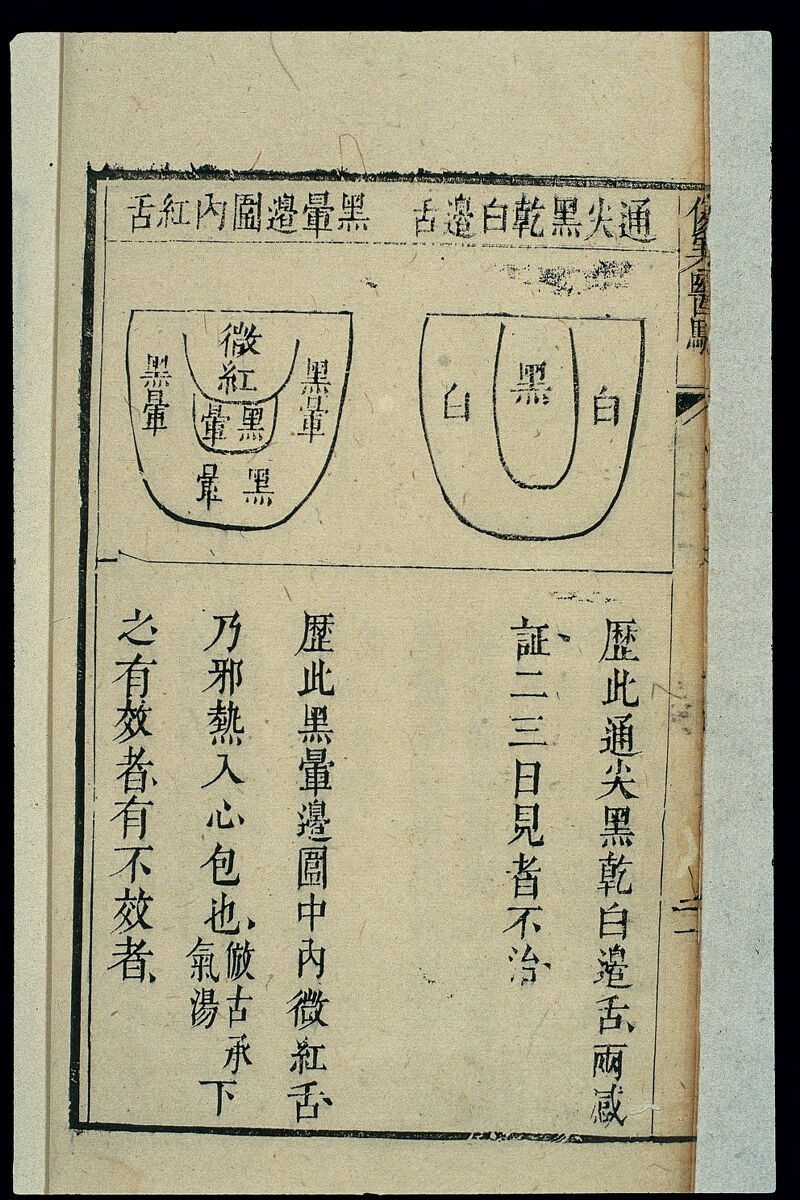 通尖黑乾白邊舌
白
黑
白
歴此通尖黑乾白邊舌、兩感
証、二三日見者不治、
黑暈邊圍內紅舌
黑暈
微紅
黑暈
黑暈
黑暈
歴此黑暈邊圍中內微紅舌、
乃邪熱入心包也、倣古承氣湯下
之有效者、有不效者、